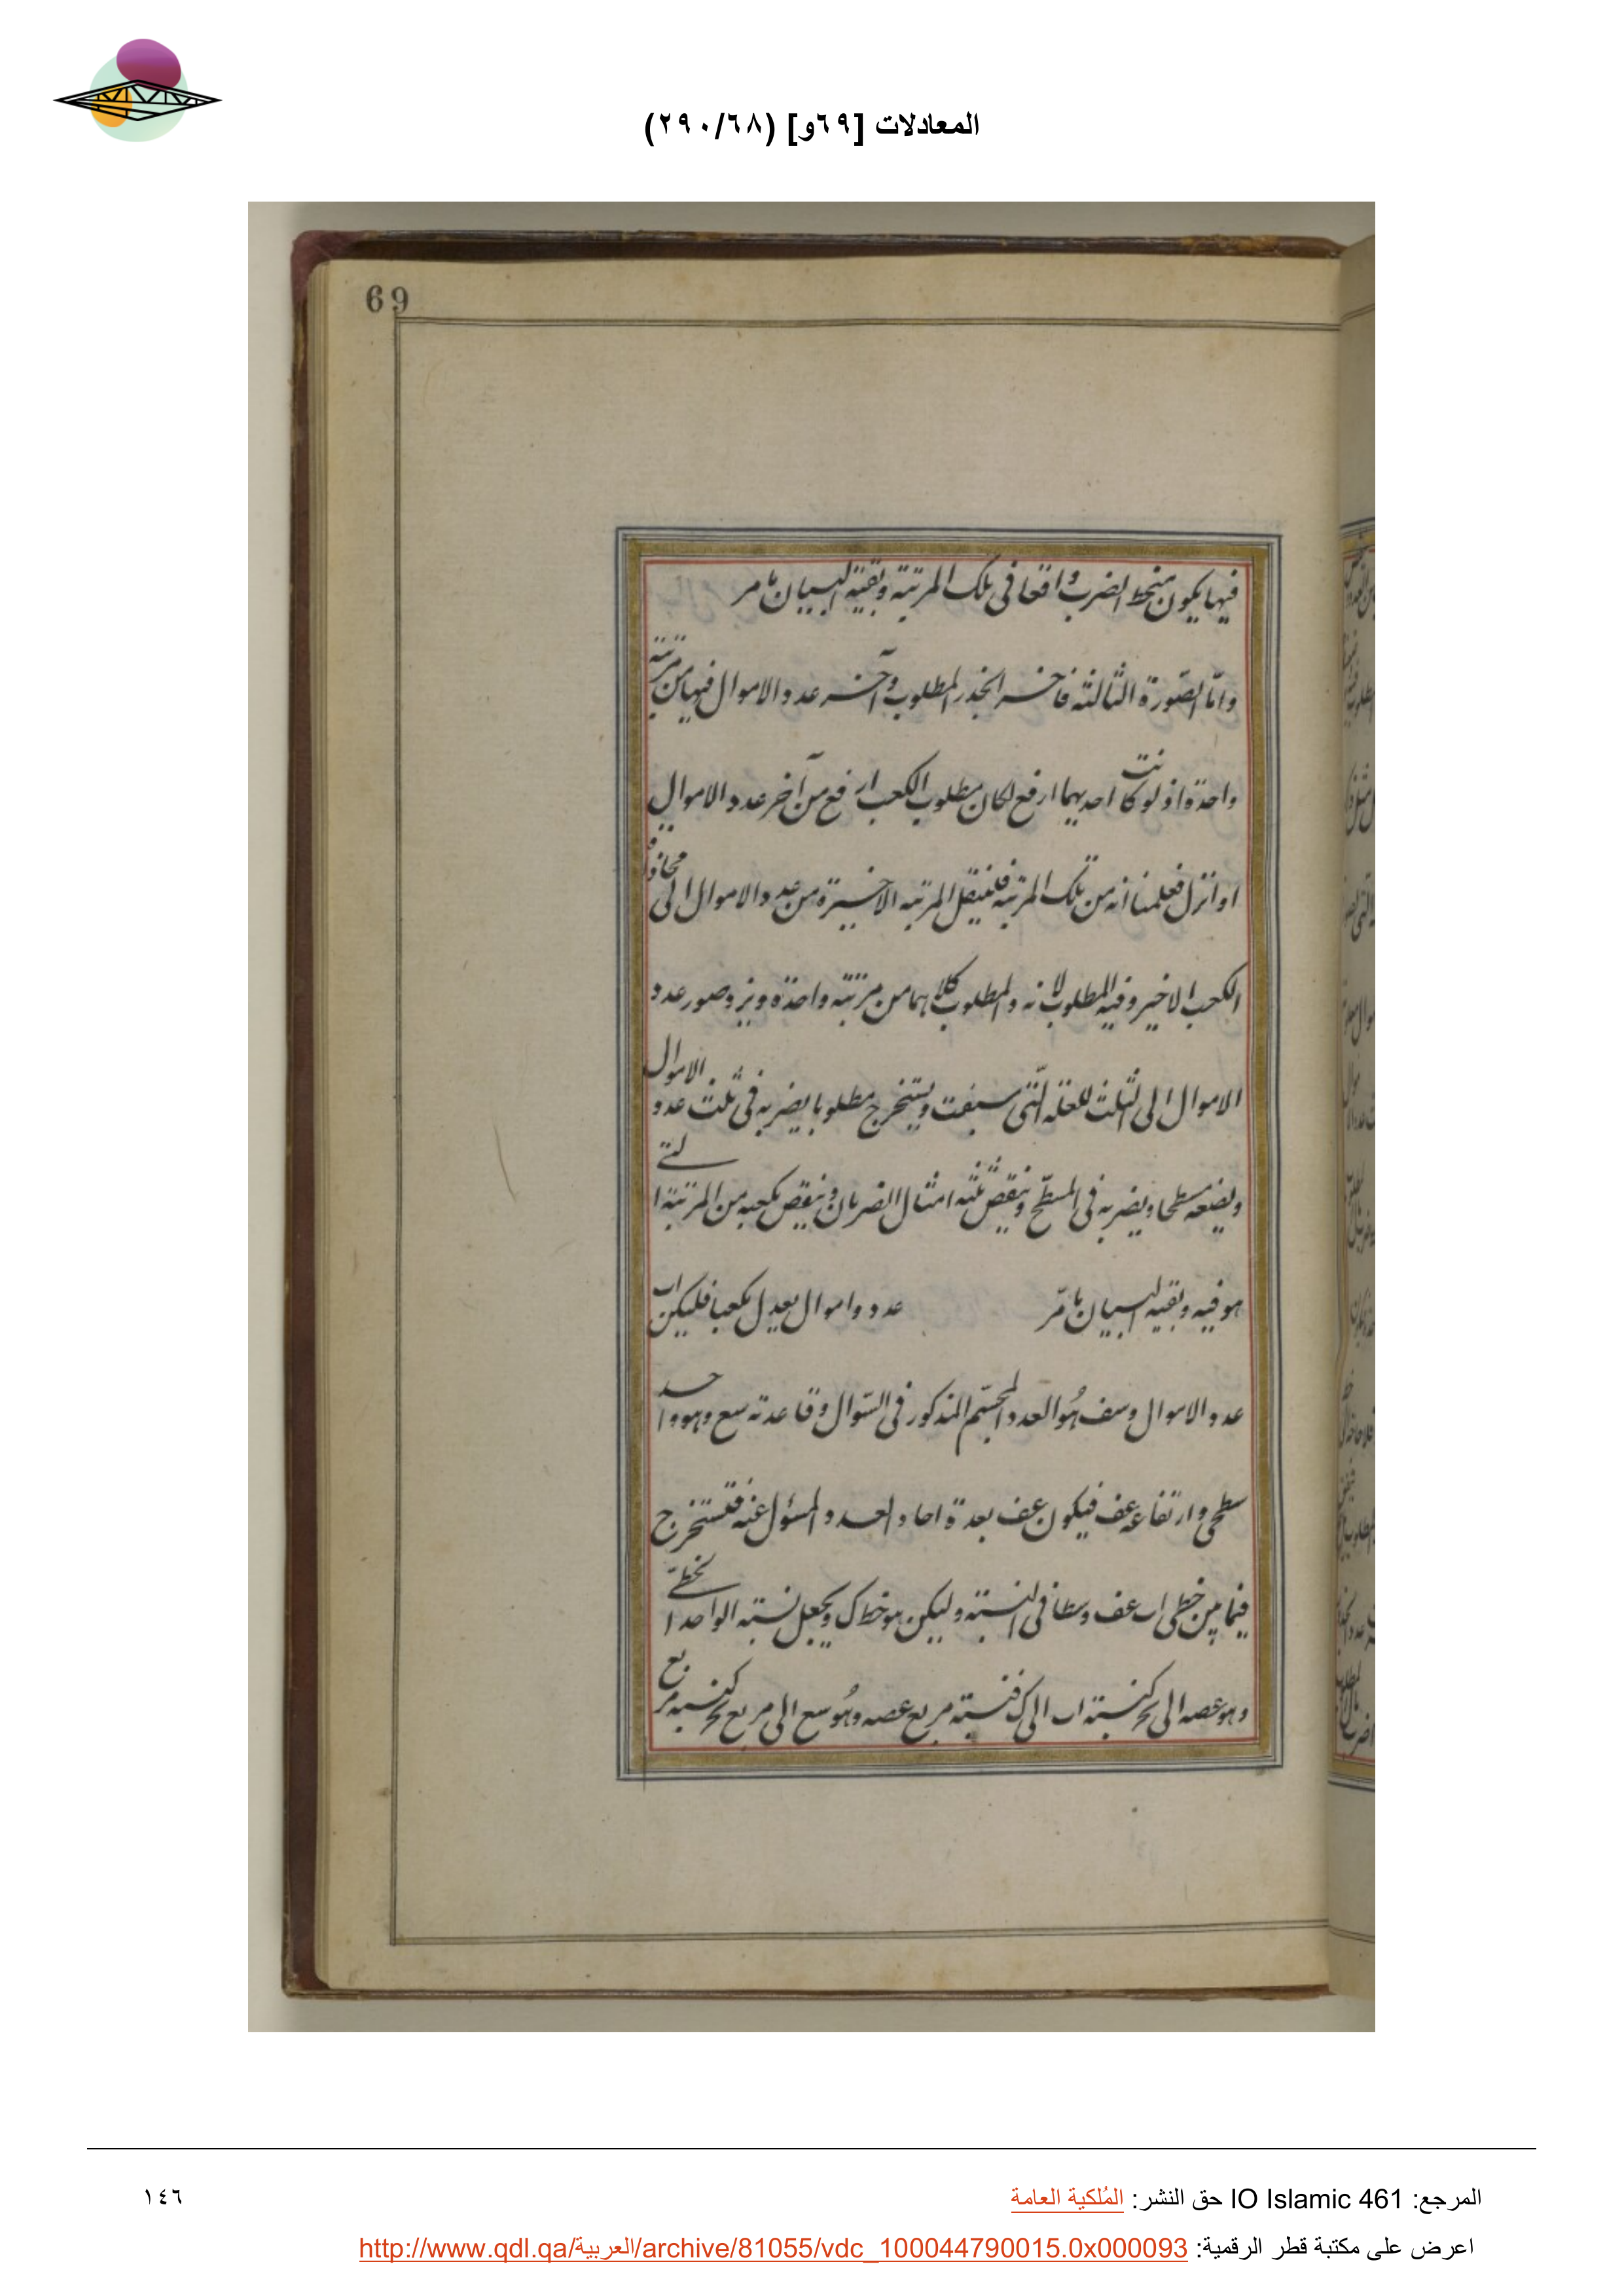 المعادلات [٦٩و] (٢٩٠/٦٨)
69
فيها يكون منحط الضرب واقعا في تلك المرتبة وبقية البيان ما مر
واما الصورة الثالثة فآخر الجذر المطلوب وآخر عدد الاموال فيها من مرتبة
واحدة اذ لو كانت احديهما ارفع لكان مطلوب الكعب ارفع من آخر عدد الاموال
او انزل فعلمنا انه من تلك المرتبة فلننقل المرتبه الاخيرة من عدد الاموال الى محاذاة
الكعب الاخير وفيه المطلوب لانه والمطلوب كلاهما من مرتبة واحدة ونرد صور عدد
الاموال الى الثلث للعلة التي سبقت ويستخرج مطلوبا يضربه في ثلث عدد الاموال
ويضعه مسطحا ويضربه في المسطح وينقص ثلثه امثال الضربان وينقص مكعبه من المرتبة التي
هو فيه وبقيه البيان ما مر عدد واموال يعدل مكعبا فليكن اب
عدد الاموال وسف هو العدد المجسم المذكور في السؤال وقاعدته سع وهو واحد
سطحي وارتفاعه عف فيكون عف بعدة احاد العدد المسؤل عنه فنستخرج
فيما بين خطى اب عف وسطا في النسبة وليكن هو خط ك ويجعل نسبة الواحد الخطي
وهو عصه الى كنسبة اب الى ك فنسبة مربع عصه وهو سع الى مربع كنسبة مربع
المرجع: IO Islamic 461 حق النشر: المُلكية العامة
١٤٦
اعرض على مكتبة قطر الرقمية: http://www.qdl.qa/العربية/archive/81055/vdc_100044790015.0x000093